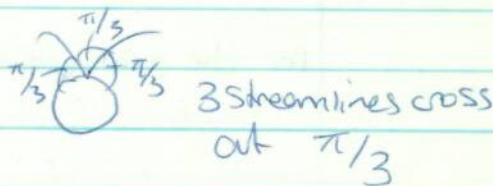 π/3
π/3 π/3
3 streamlines cross
at π/3